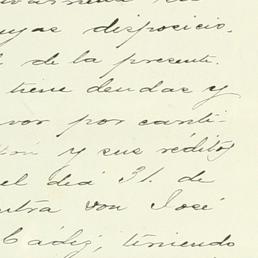 uyas disposicio.
de la presente.
tiene deudas y
vor por canti-
y sus réditos
el dia 31. de
ntra von José
Cádiz, teniendo